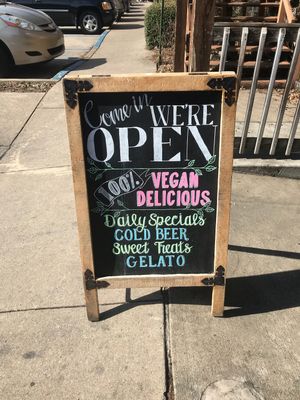 Come in WE'RE
OPEN
100% VEGAN
DELICIOUS
Daily Specials
COLD BEER
Sweet Treats
GELATO